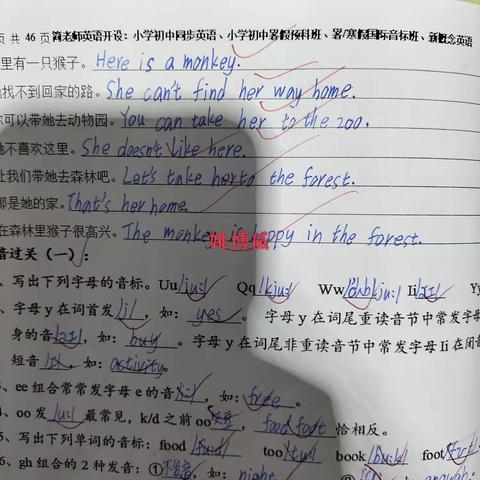 页 共 46 页 简老师英语开设：小学初中同步英语、小学初中暑假预科班、暑/寒假国际音标班、新概念英语
里有一只猴子。Here is a monkey.
找不到回家的路。She can't find her way home.
你可以带她去动物园。You can take her to the zoo.
她不喜欢这里。She doesn't like here.
让我们带她去森林吧。Let's take her to the forest.
那是她的家。That's her home.
在森林里猴子很高兴。The monkey is happy in the forest.
音过关（一）：
、写出下列字母的音标。Uu /ju:/ Qq /kju:/ Ww Ii Yy
、字母 y 在词首发 /j/ ，如：yes 。 字母 y 在词尾重读音节中常发字母
身的音 ，如：buy 。字母 y 在词尾非重读音节中常发字母 Ii 在闭音
短音 ，如：activity。
、ee 组合常常发字母 e 的音 /i:/ ，如：free 。
4、oo 发 /u:/ 最常见，k/d 之前 oo ， food foot 恰相反。
5、写出下列单词的音标：food too /tu:/ book foot
6、gh 组合的 2 种发音：①不发音，如：night